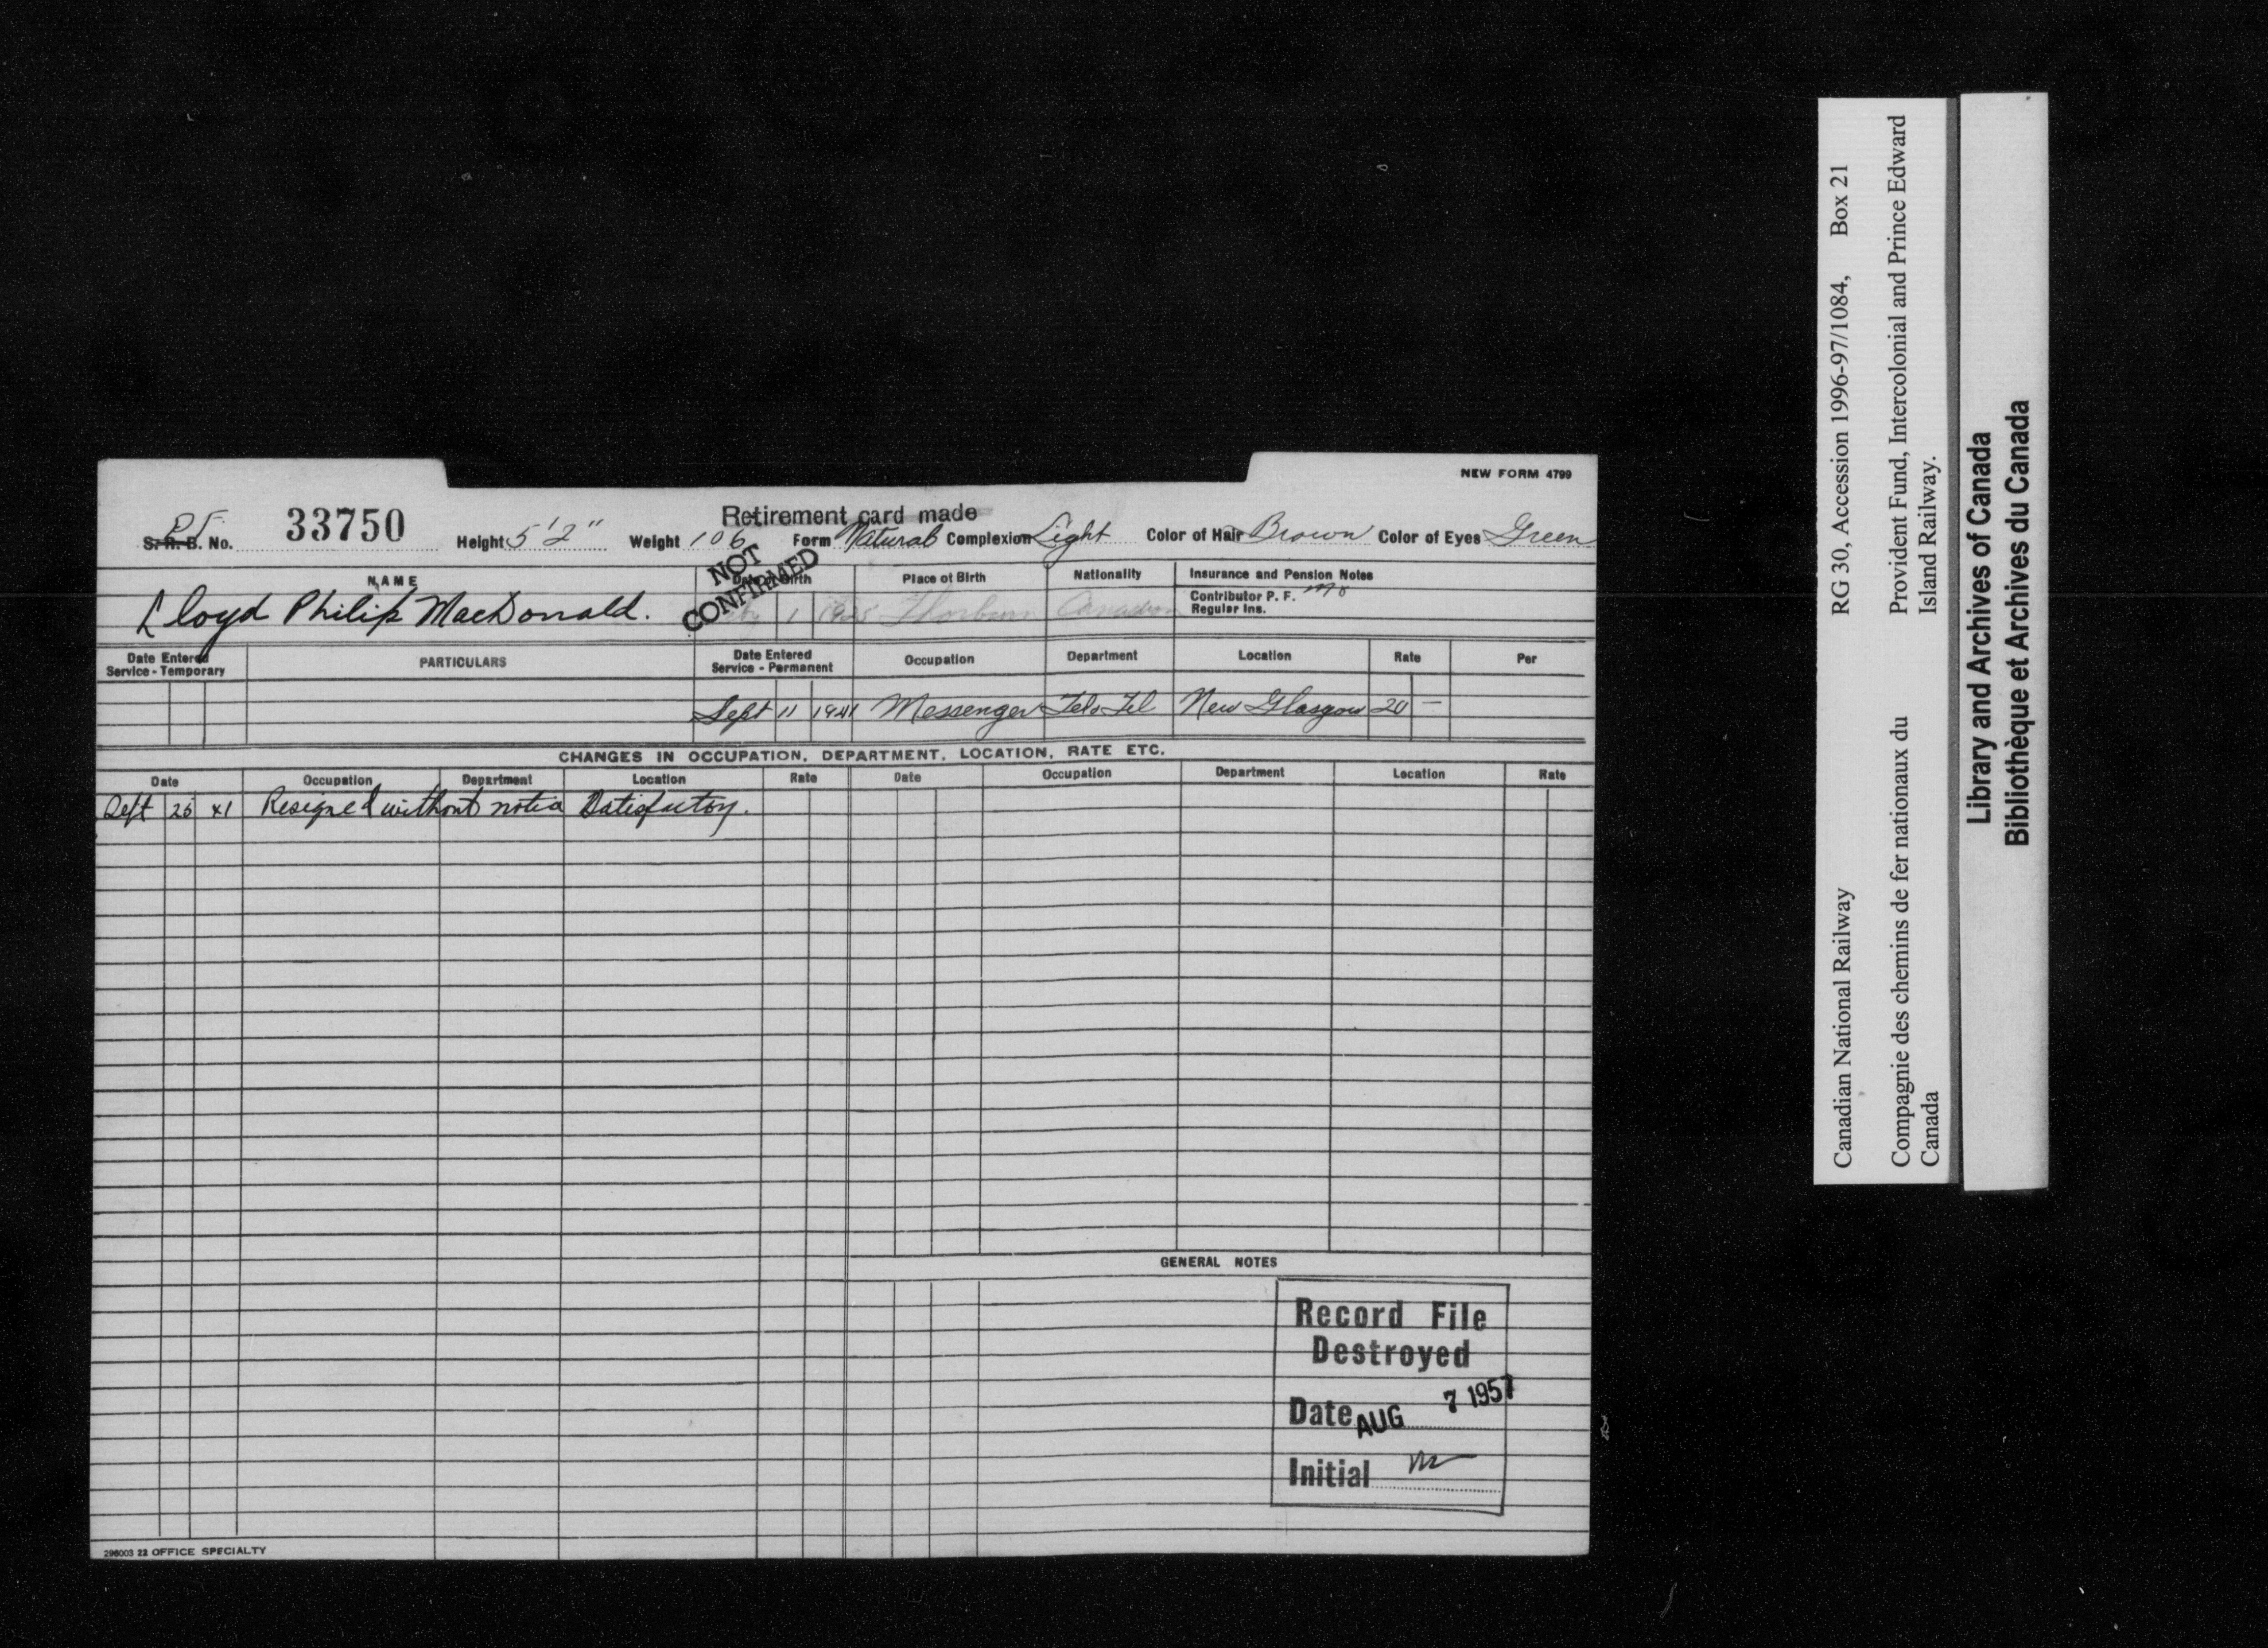 NEW FORM 4799
Retirement card made
P.F.
S. R. B. No. 33750 Height 5'2" Weight 106 Form Natural Complexion Light Color of Hair Brown Color of Eyes Green
NOT
CONFIRMED
NAME Date of Birth Place of Birth Nationality Insurance and Pension Notes
Contributor P. F. no
Regular Ins.
Lloyd Philip MacDonald. 1 1925 Thorburn Canadian
Date Entered Service - Temporary PARTICULARS Date Entered Service - Permanent Occupation Department Location Rate Per
Sept 11 1941 Messenger Tel & Tel New Glasgow 20 —
CHANGES IN OCCUPATION, DEPARTMENT, LOCATION, RATE ETC.
Date Occupation Department Location Rate Date Occupation Department Location Rate
Sept 25 41 Resigned without notice Satisfactory.
GENERAL NOTES
Record File
Destroyed
Date AUG 7 1957
Initial
296003 22 OFFICE SPECIALTY
Canadian National Railway RG 30, Accession 1996-97/1084, Box 21
Compagnie des chemins de fer nationaux du Provident Fund, Intercolonial and Prince Edward
Canada Island Railway.
Library and Archives of Canada
Bibliothèque et Archives du Canada